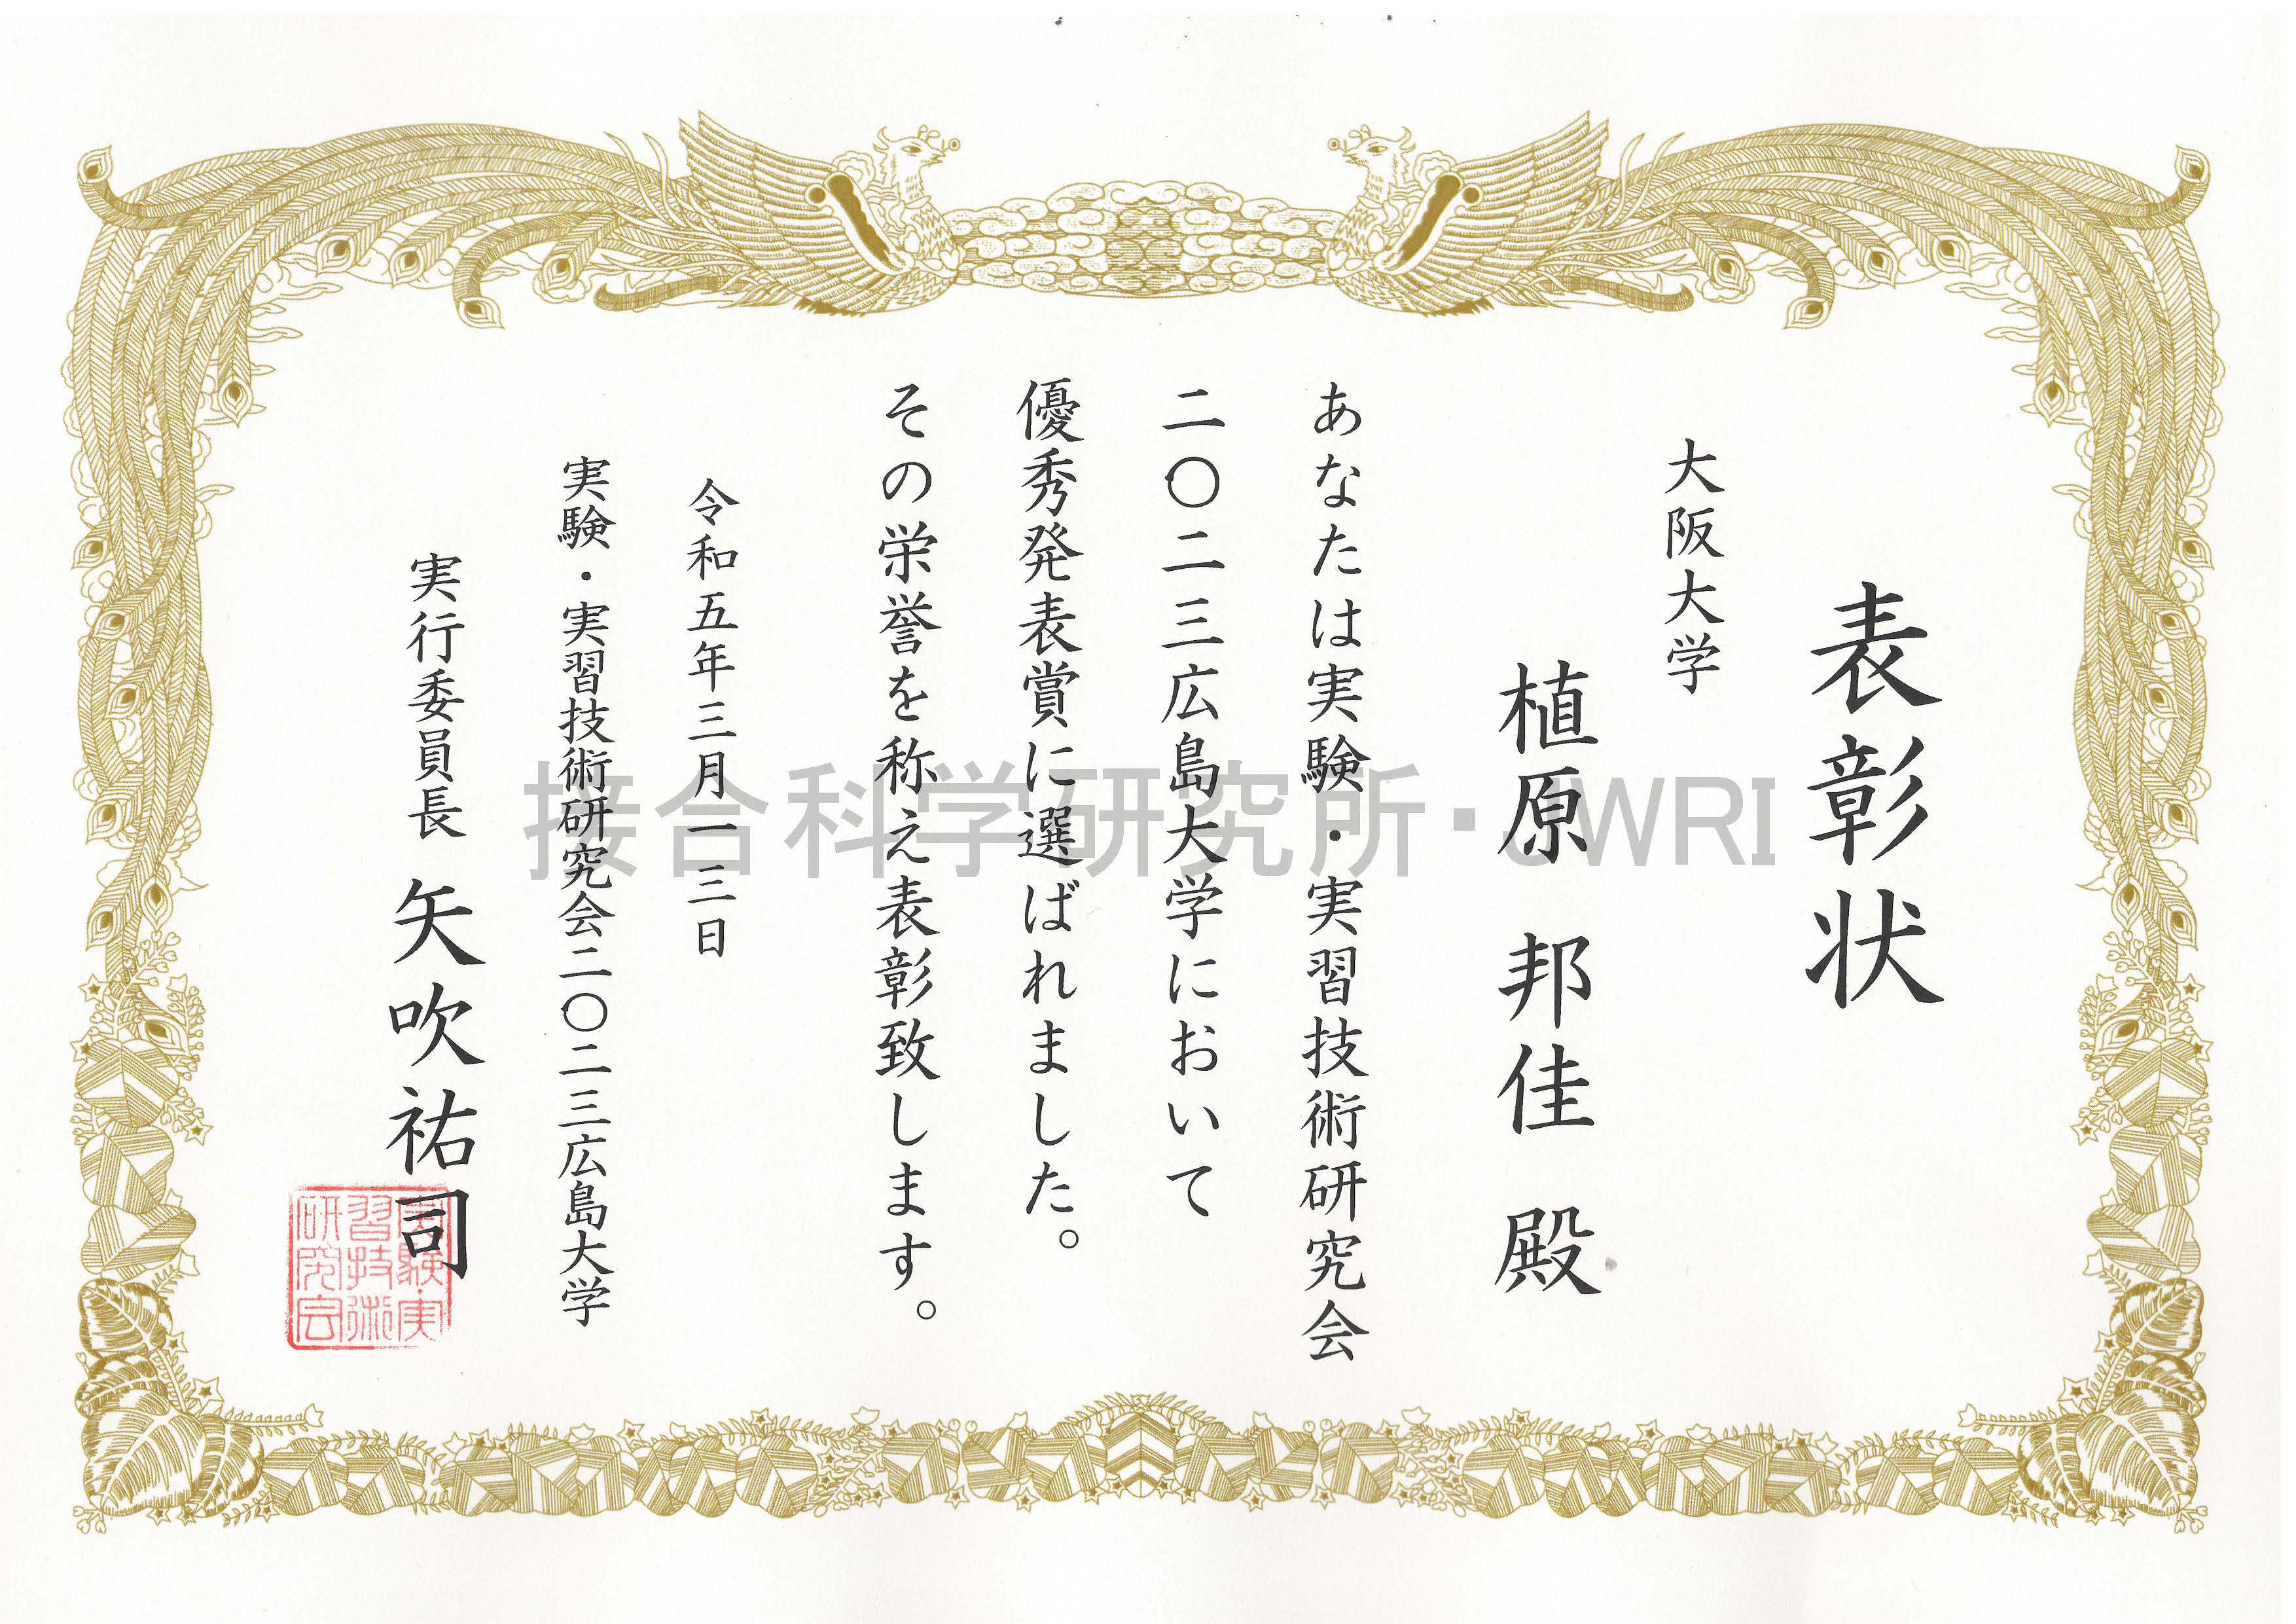 表彰状
大阪大学
植原 邦佳 殿
あなたは実験・実習技術研究会
二〇二三広島大学において
優秀発表賞に選ばれました。
その栄誉を称え表彰致します。
令和五年三月一三日
実験・実習技術研究会二〇二三広島大学
実行委員長 矢吹祐司
実験・実
習技術
研究会
接合科学研究所・JWRI